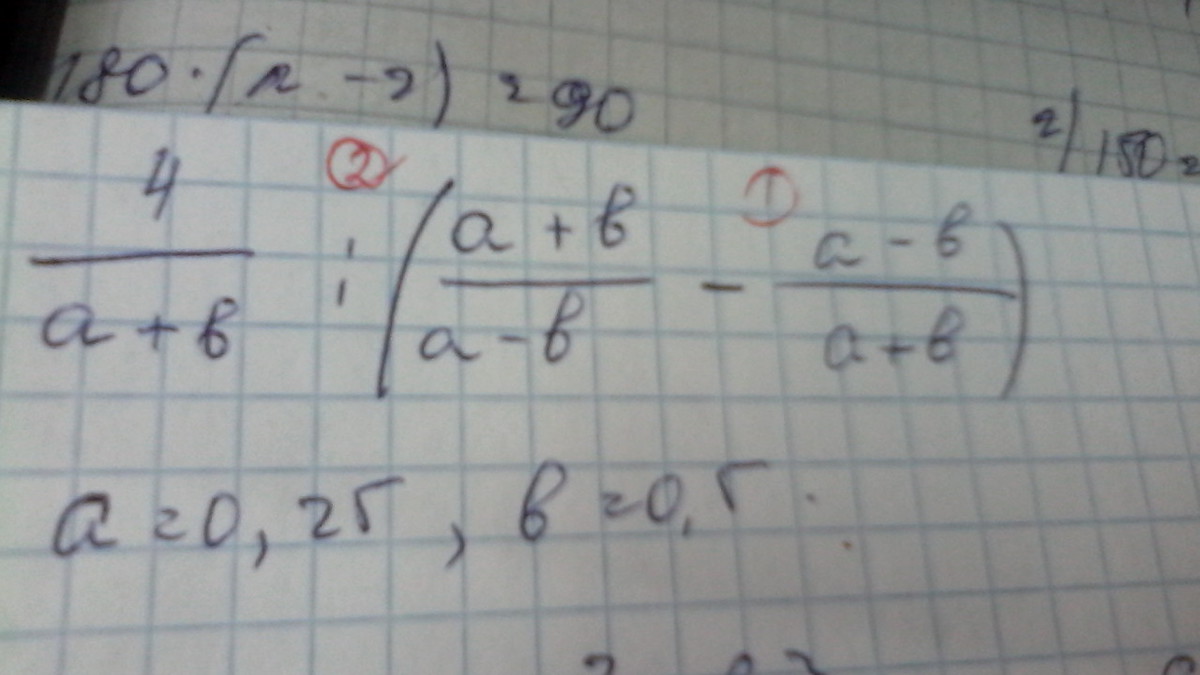 180·(n-2)=90
2) 180=
② ①
4/(a+b) : ((a+b)/(a-b) - (a-b)/(a+b))
a=0,25, b=0,5.